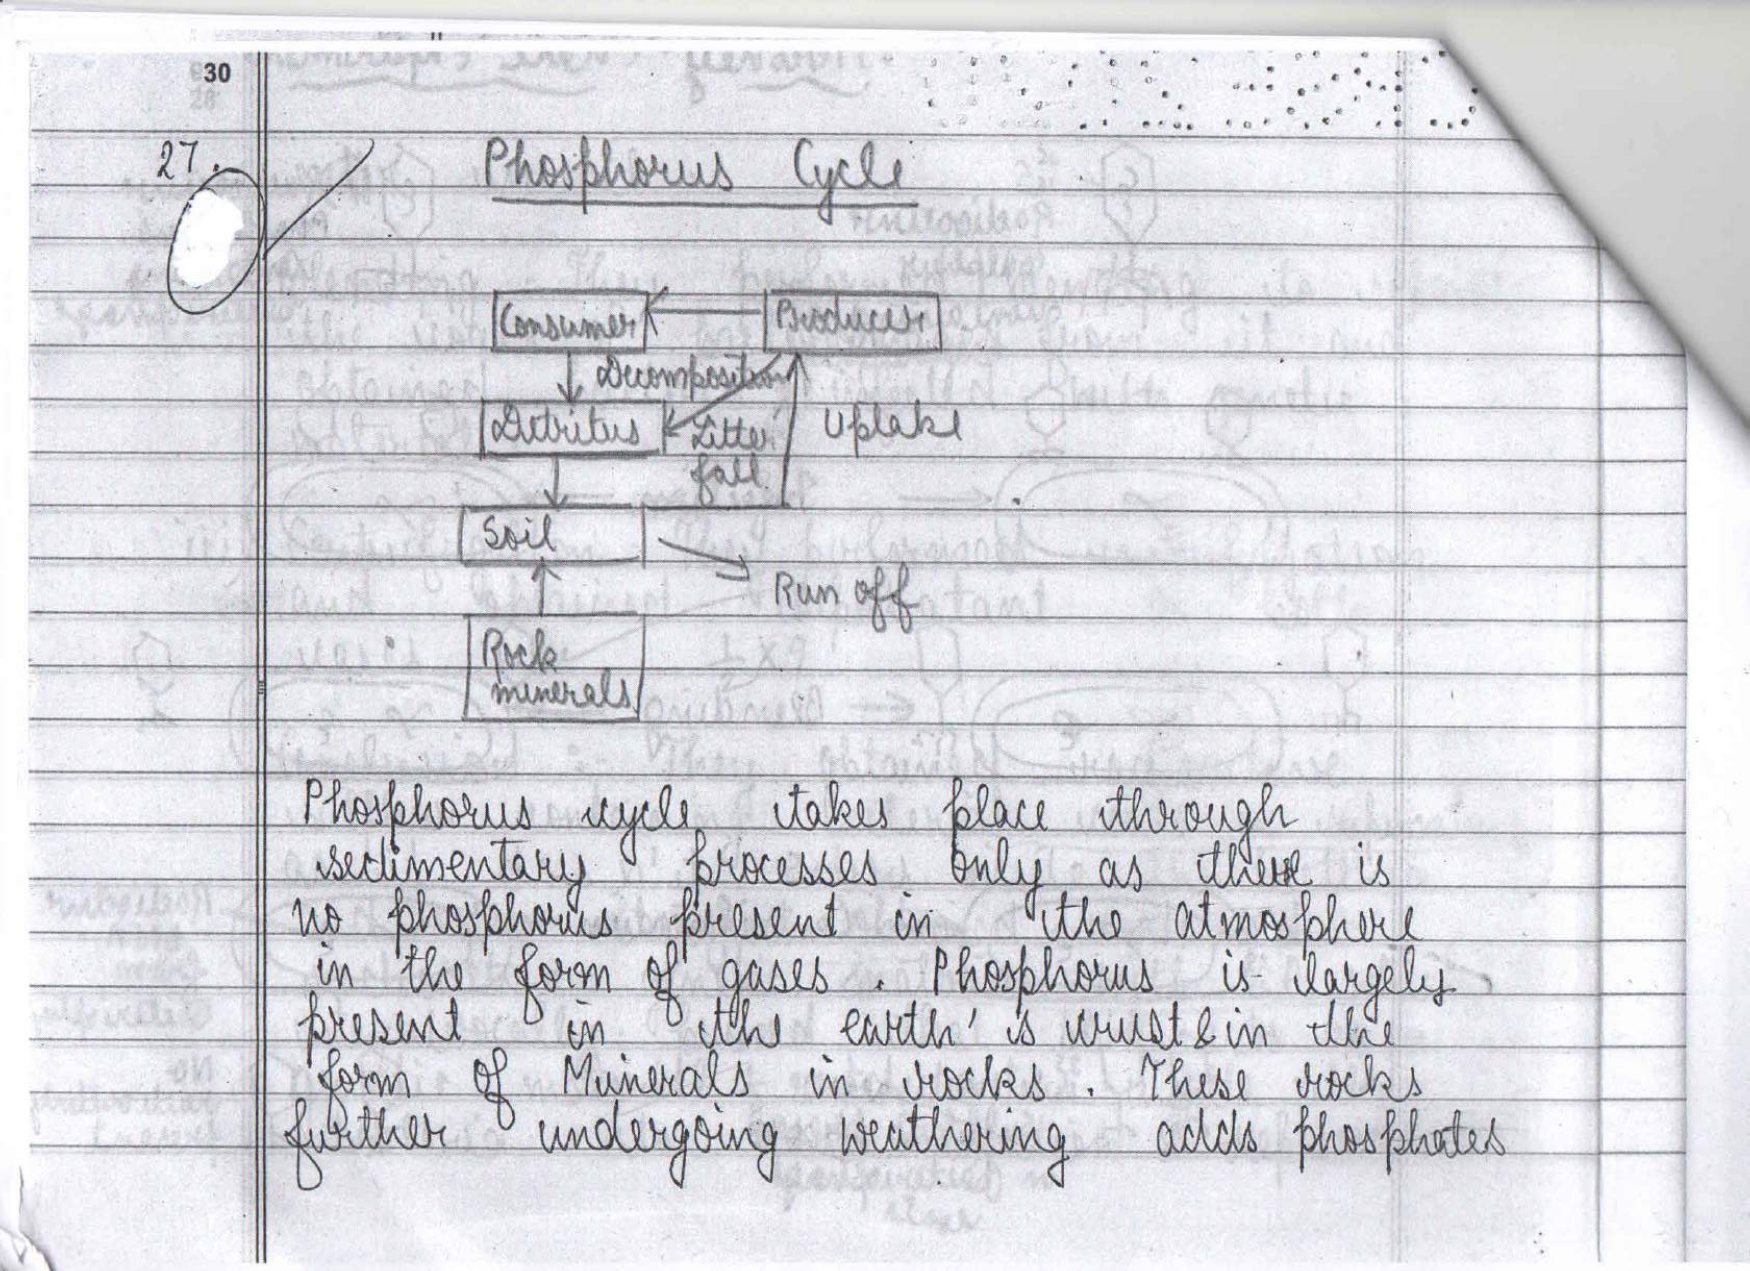 30
27.
Phosphorus Cycle
Consumer
Producer
Decomposition
Detritus
Litter
fall
Uptake
Soil
Run off
Rock
minerals
Phosphorus cycle takes place through
sedimentary processes only as there is
no phosphorus present in the atmosphere
in the form of gases. Phosphorus is largely
present in the earth's crust & in the
form of Minerals in rocks. These rocks
further undergoing weathering adds phosphates